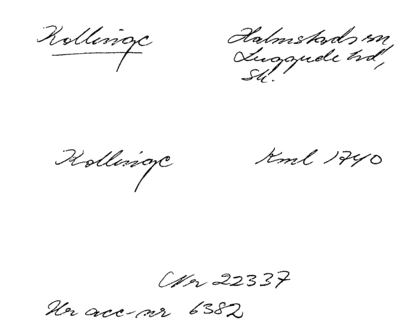 Kollinge Halmstads sn
Luggude hd,
Sk.
Kollinge Kml 1740
Nr 22337
Ur acc-nr 6382